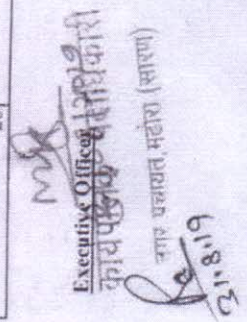 Executive Officer
कार्यपालक पदाधिकारी
नगर पंचायत मढ़ौरा (सारण)
21.8.19